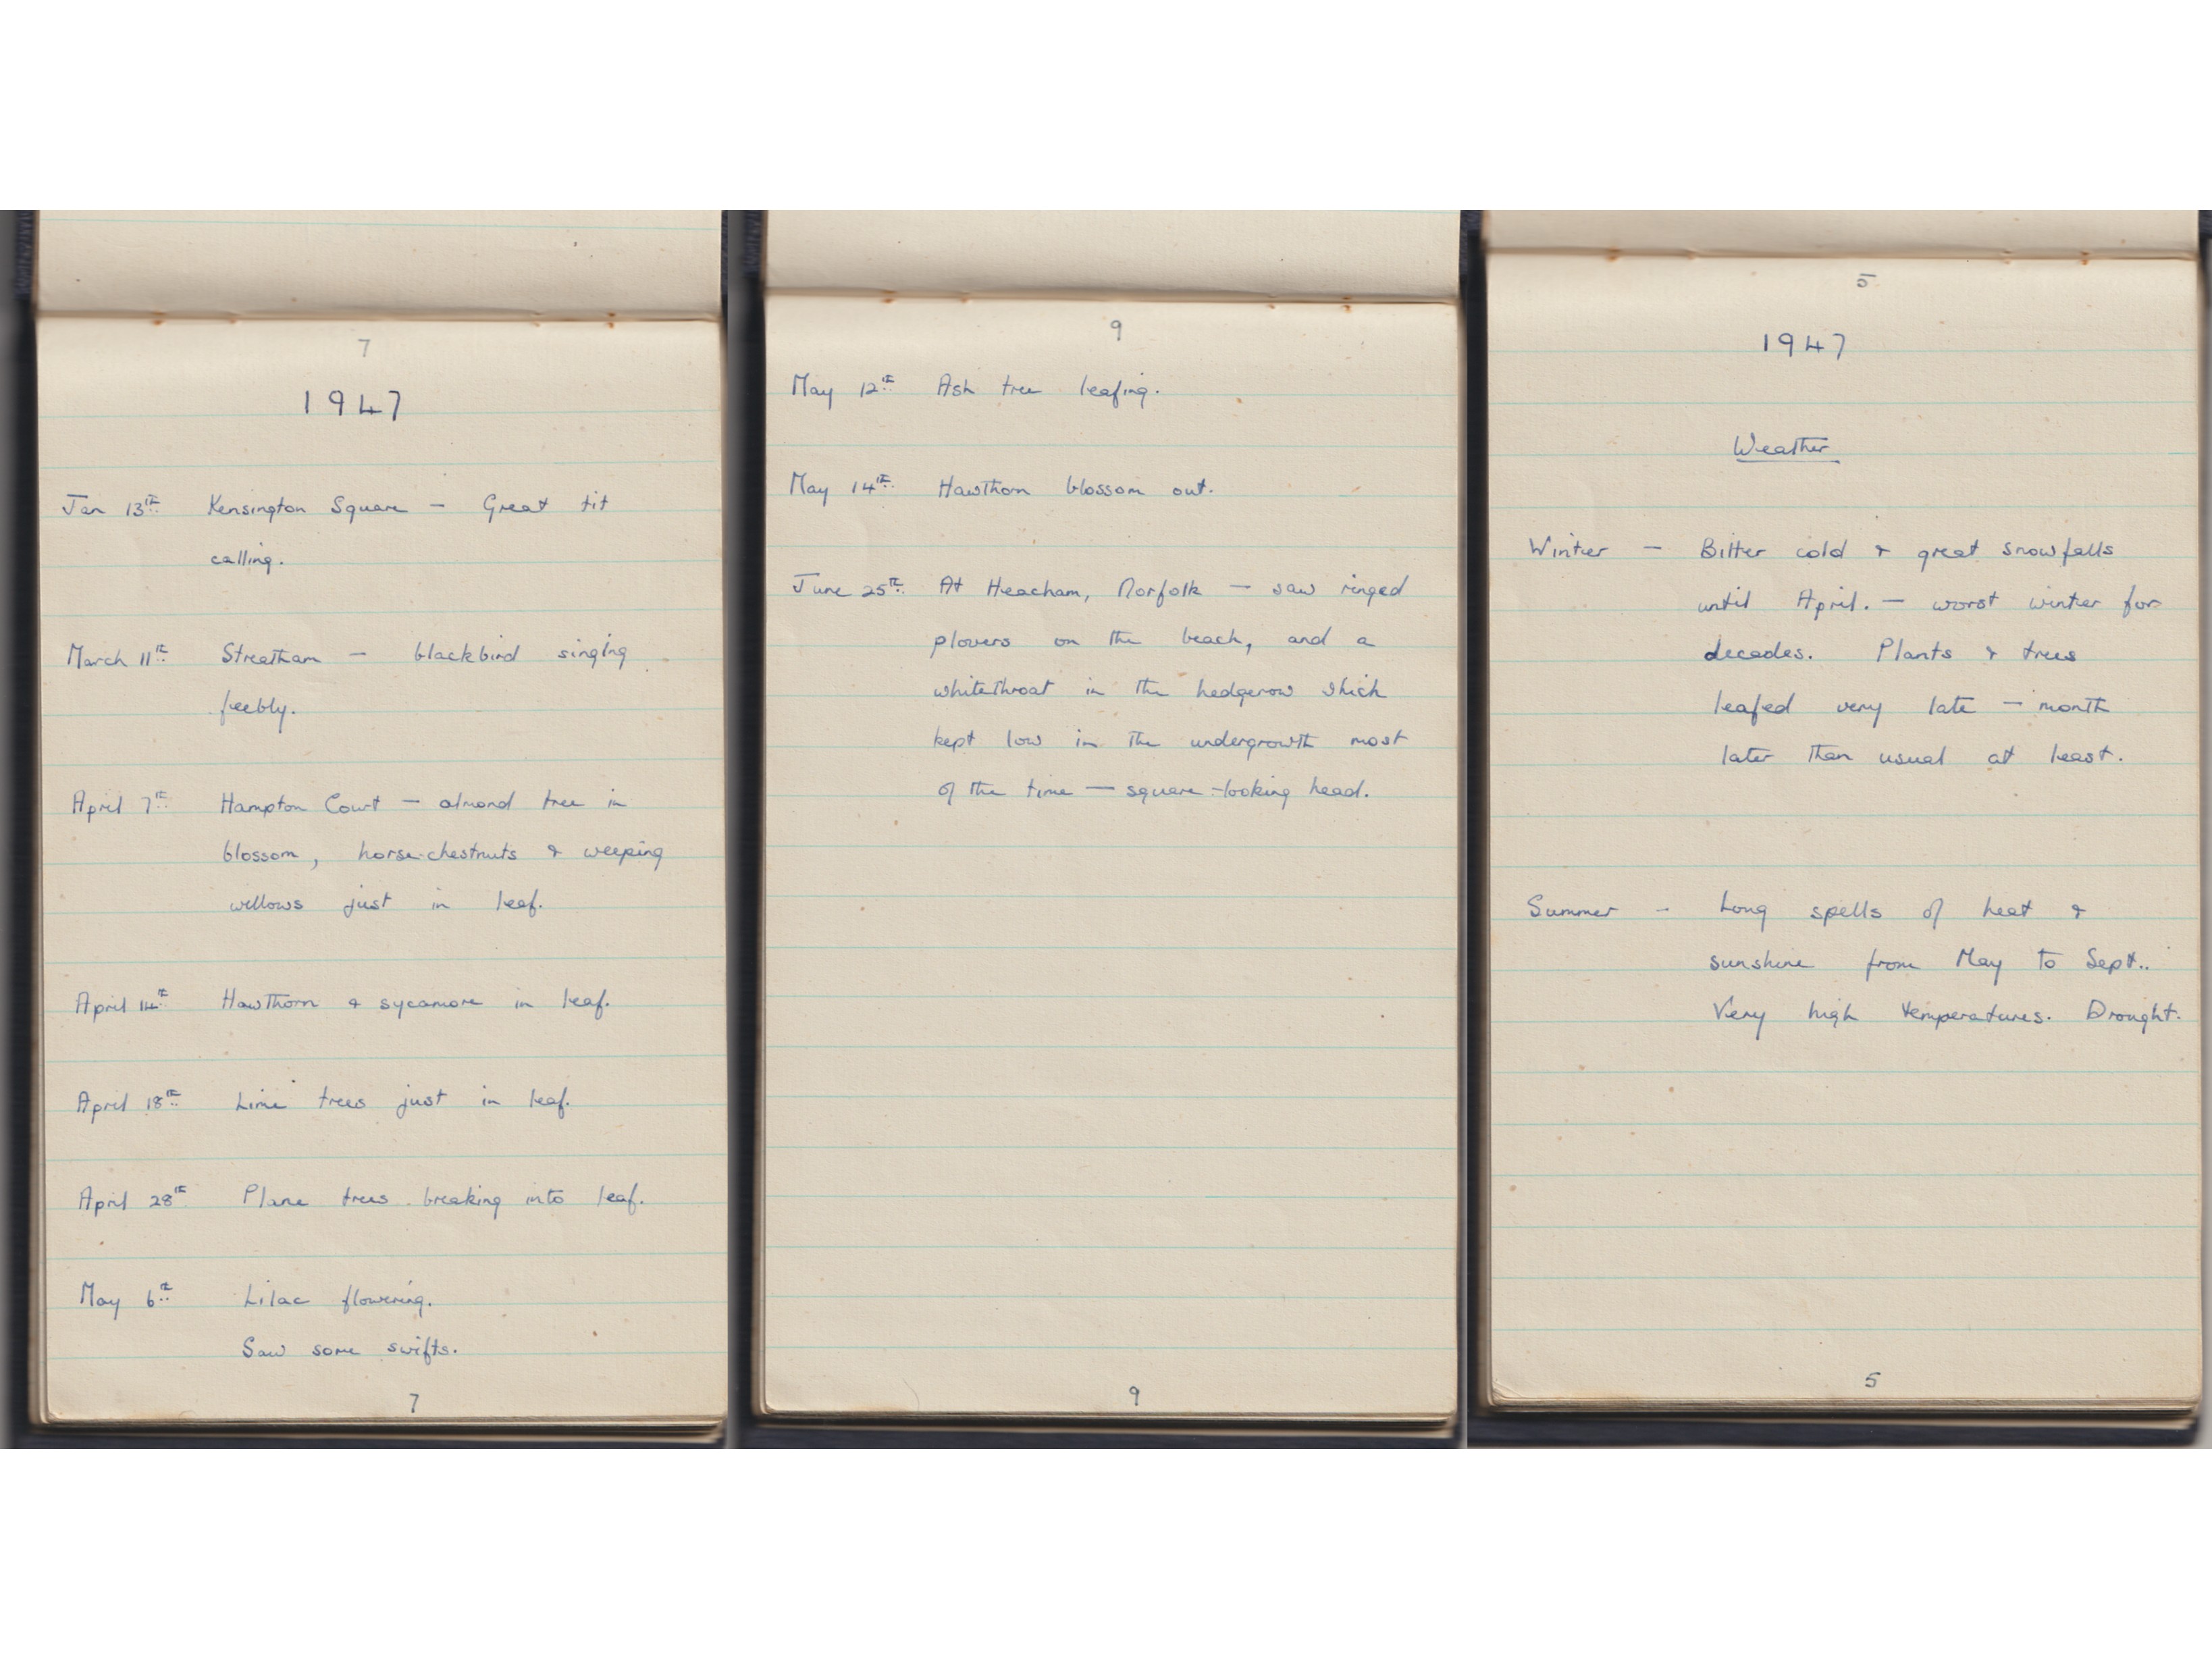 7
1947
Jan 13th Kensington Square – Great tit
calling.
March 11th Streatham – blackbird singing
feebly.
April 7th Hampton Court – almond tree in
blossom, horse-chestnuts & weeping
willows just in leaf.
April 14th Hawthorn & sycamore in leaf.
April 18th Lime trees just in leaf.
April 28th Plane trees breaking into leaf.
May 6th Lilac flowering.
Saw some swifts.
7
9
May 12th Ash tree leafing.
May 14th Hawthorn blossom out.
June 25th At Heacham, Norfolk – saw ringed
plovers on the beach, and a
whitethroat in the hedgerow which
kept low in the undergrowth most
of the time – square-looking head.
9
5
1947
Weather
Winter – Bitter cold & great snowfalls
until April. – worst winter for
decades. Plants & trees
leafed very late – month
later than usual at least.
Summer – Long spells of heat &
sunshine from May to Sept..
Very high temperatures. Drought.
5